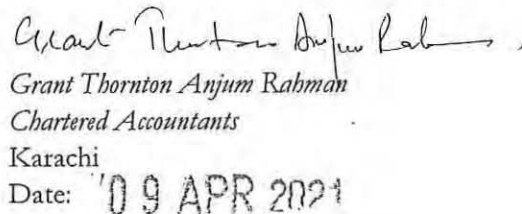 Grant Thornton Anjum Rahman
Grant Thornton Anjum Rahman
Chartered Accountants
Karachi
Date: 09 APR 2021